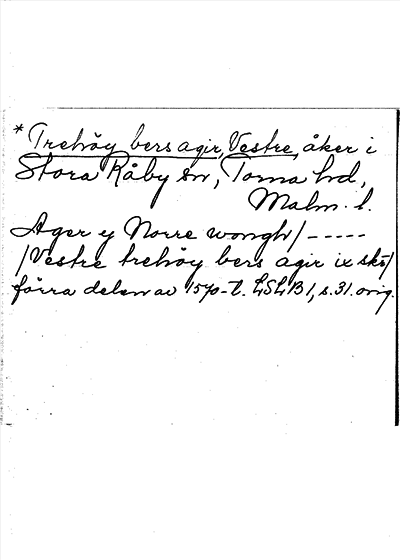 * Trehöy bers agir, Vestre, åker i
Stora Råby sn, Torna hd,
Malm. l.
Ager y Norre wongh/-----
/Vestre trehöy bers agir ix sks/
förra delen av 1570-t. LSLB1, s.31. orig.